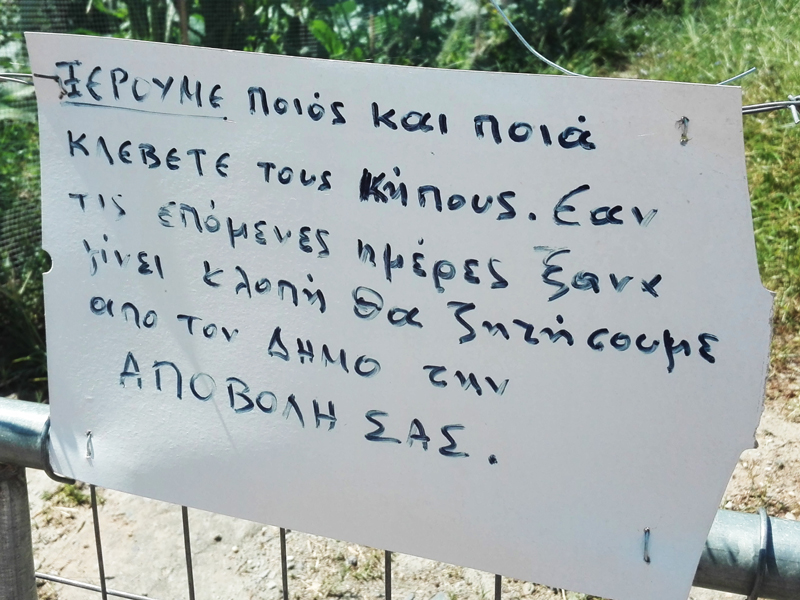 ΞΕΡΟΥΜΕ ποιός και ποιά
ΚΛΕΒΕΤΕ τους κήπους. Εαν
τις επόμενες ημέρες ξανα
γίνει κλοπή θα ζητήσουμε
απο τον ΔΗΜΟ την
ΑΠΟΒΟΛΗ ΣΑΣ.